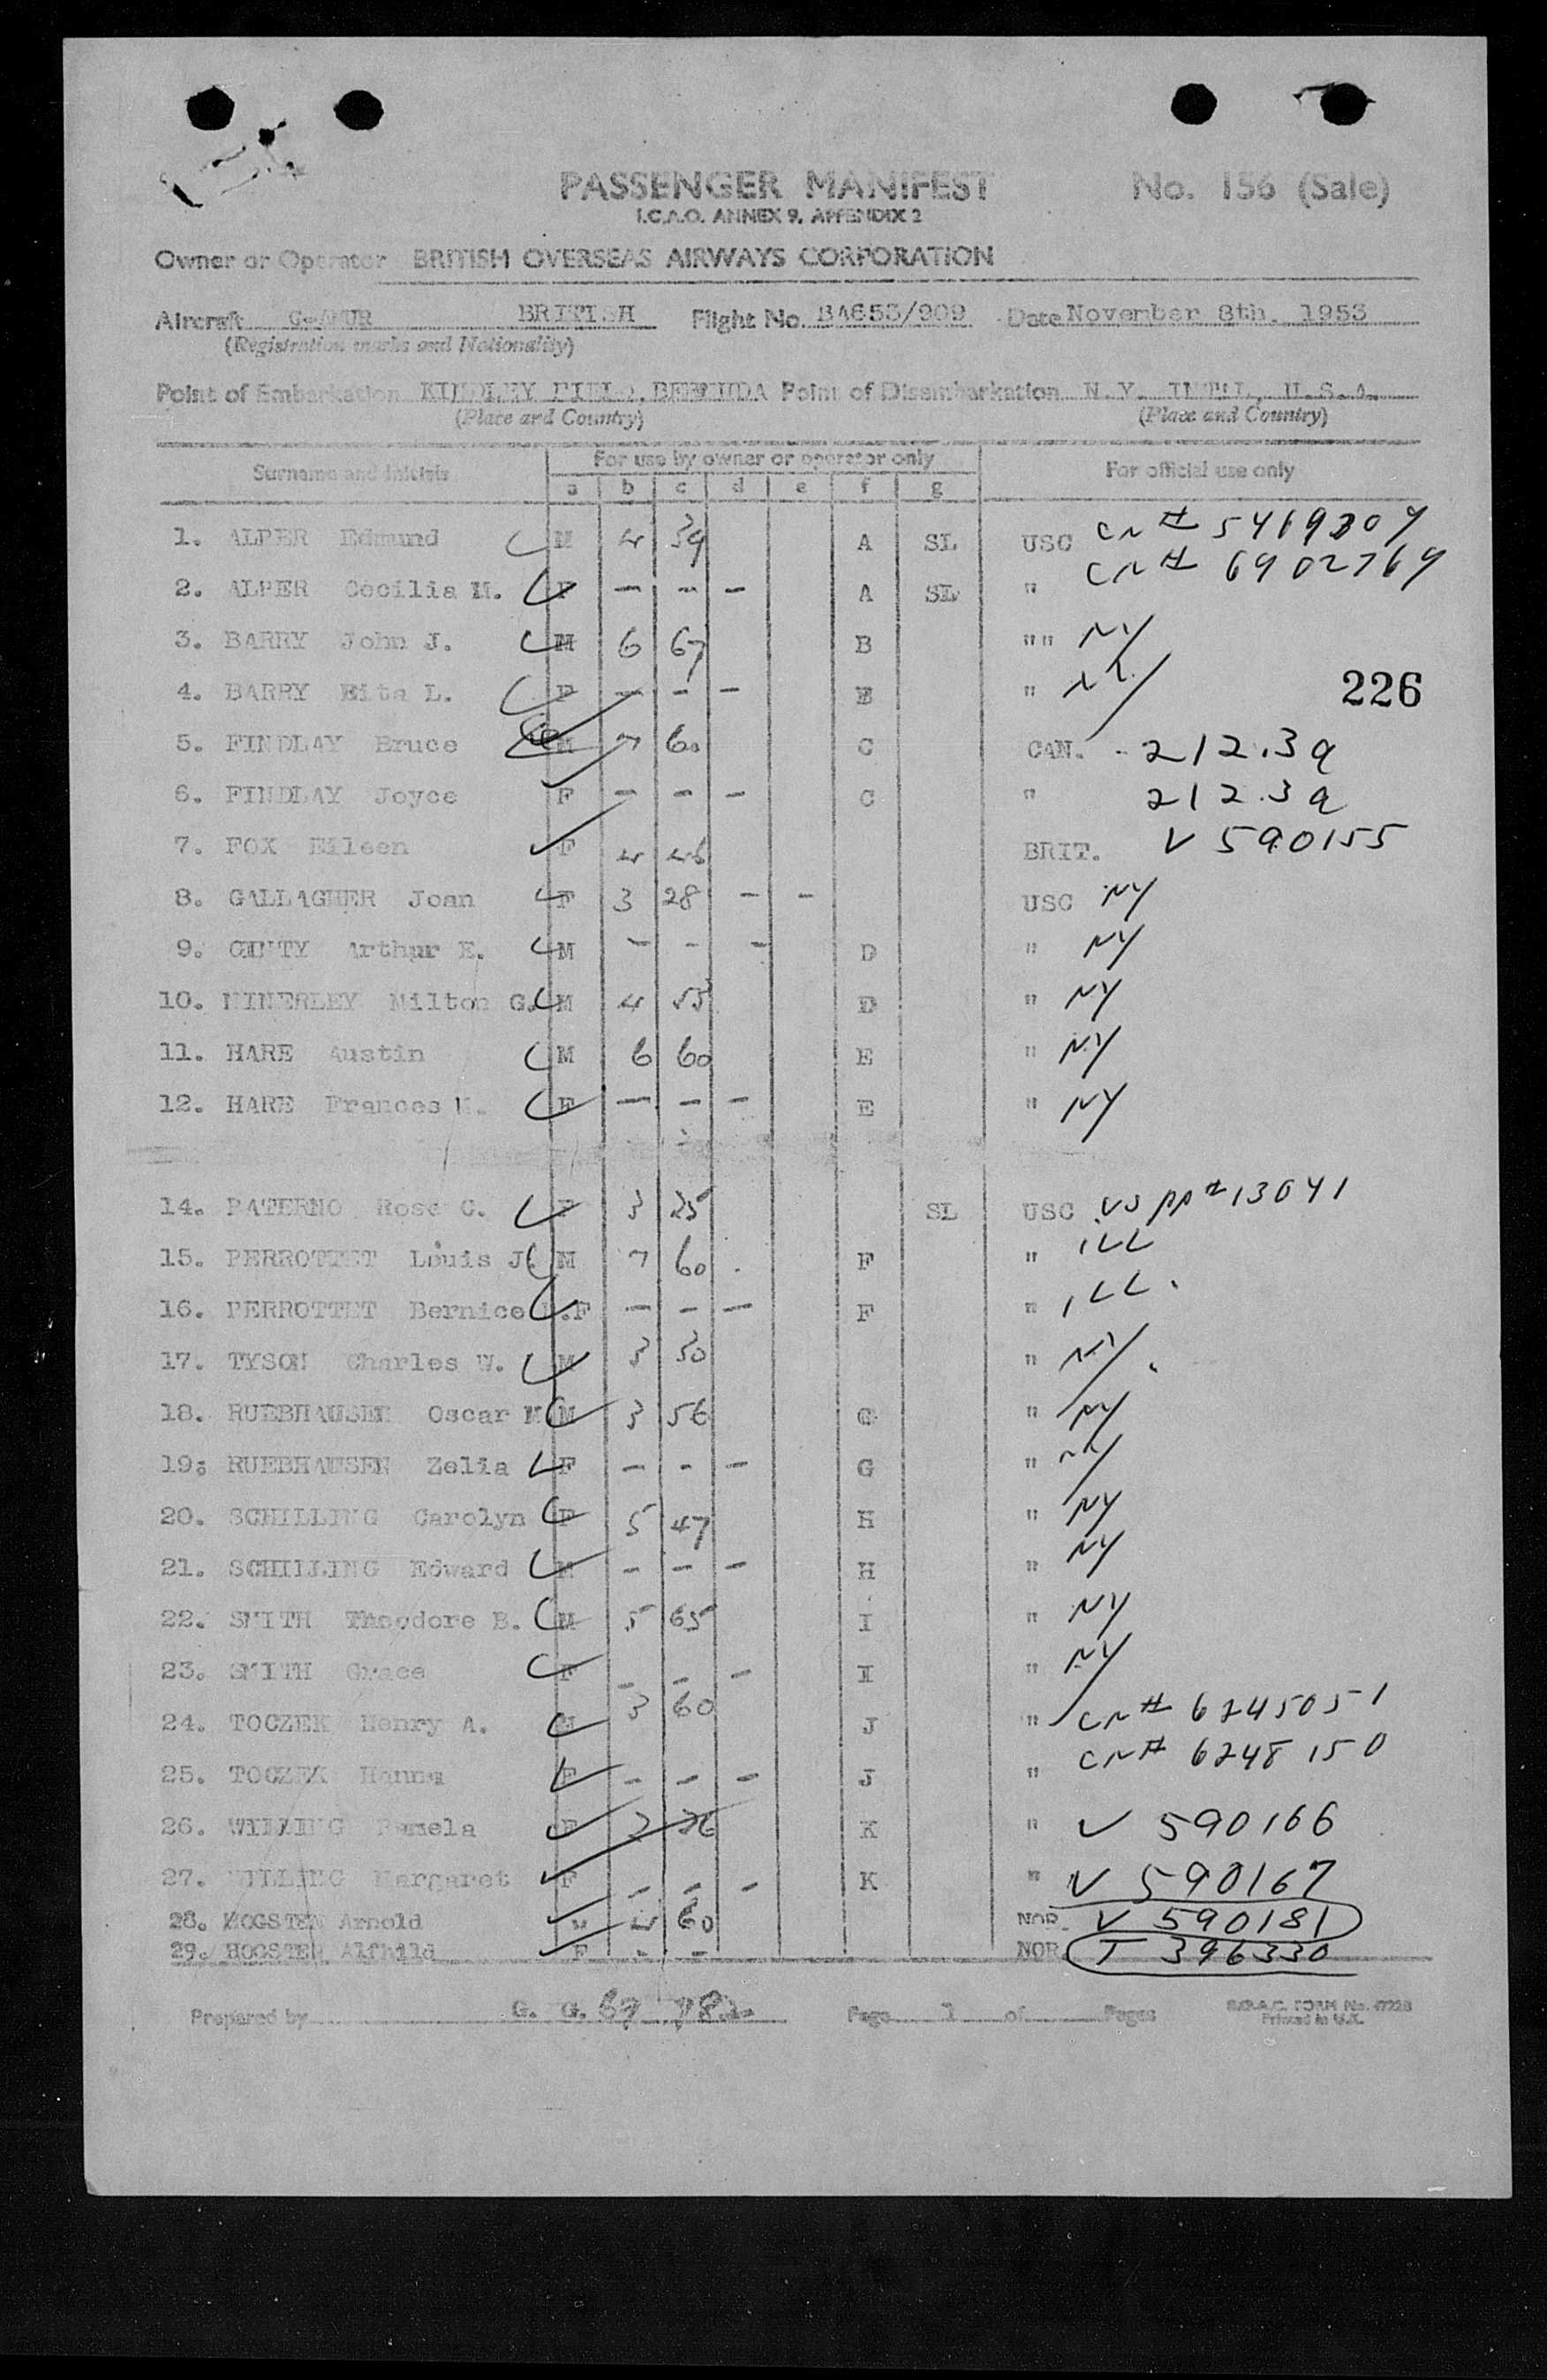 PASSENGER MANIFEST No. 156 (Sale)
I.C.A.O. ANNEX 9, APPENDIX 2
Owner or Operator BRITISH OVERSEAS AIRWAYS CORPORATION
Aircraft BRITISH Flight No. BA653/909 Date November 8th. 1953
(Registration marks and Nationality)
Point of Embarkation KINDLEY FIELD, BERMUDA Point of Disembarkation N.Y. INTL, U.S.A.
(Place and Country) (Place and Country)
Surname and Initials For use by owner or operator only For official use only
a b c d e f g
1. ALPER Edmund M 4 39 A SL USC CN# 5469304
2. ALPER Cecilia M. F - - - A SL " CN# 6902764
3. BARRY John J. M 6 67 B "" NY
4. BARRY Rita L. F - - - B " NY
226
5. FINDLAY Bruce M 7 60 C CAN. - 212.3a
6. FINDLAY Joyce F - - - C " 212.3a
7. FOX Eileen F 4 46 BRIT. V 590155
8. GALLAGHER Joan F 3 28 - - USC NY
9. GINTY Arthur E. M - - - D " NY
10. Milton G. M 4 55 D " NY
11. HARE Austin M 6 60 E " NY
12. HARE Frances M. F - - - E " NY
14. PATERNO Rose C. F 3 25 SL USC US PP# 13041
15. PERROTTET Louis J. M 7 60 F " ILL
16. PERROTTET Bernice .F - - - F " ILL.
17. TYSON Charles W. M 3 30 " NY.
18. RUEBHAUSEN Oscar M M 3 56 G " NY
19. RUEBHAUSEN Zelia F - - - G " NY
20. SCHILLING Carolyn F 5 47 H " NY
21. SCHILLING Edward M - - - H " NY
22. SMITH Theodore B. M 5 65 I " NY
23. SMITH Grace F - - - I " NY
24. TOCZEK Henry A. M 3 60 J " CN# 6245051
25. TOCZEK Hanna F - - - J " CN# 6248150
26. WILLING Pamela F 2 26 K " V 590166
27. WILLING Margaret F - - - K " V 590167
28. HOGSTEN Arnold M 4 60 NOR. V 590181
29. HOGSTEN Alfhild F - - NOR. T 396330
Prepared by G. G. 67 782 Page 1 of Pages B.O.A.C. FORM No.
Printed in U.K.